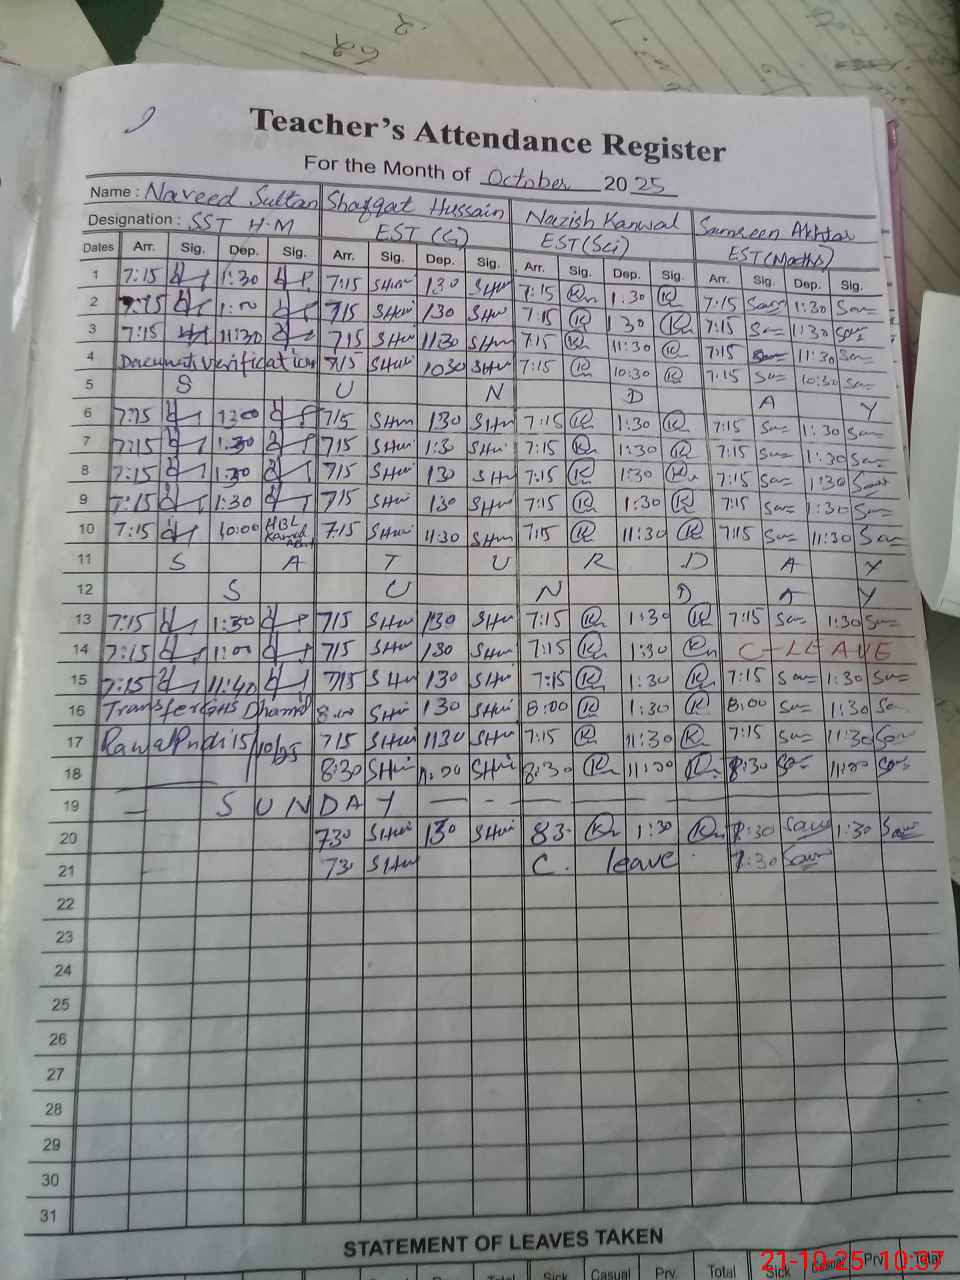 Teacher's Attendance Register
For the Month of October 2025
Name : Naveed Sultan Shafqat Hussain Nazish Kanwal Samreen Akhtar
Designation : SST H.M EST (G) EST (Sci) EST (Maths)
Dates Arr. Sig. Dep. Sig. Arr. Sig. Dep. Sig. Arr. Sig. Dep. Sig. Arr. Sig. Dep. Sig.
1 7:15 1:30 7:15 SHui 130 SHui 7:15 1:30 7:15 Sam 1:30 Sam
2 7:15 1:00 715 SHui 130 SHui 7:15 1 30 7:15 Sam 11:30 Sam
3 7:15 11:30 715 SHui 1130 SHui 7:15 11:30 7:15 11:30 Sam
4 Document verification 715 SHui 1030 SHui 7:15 10:30 7:15 Sam 10:30 Sam
5 S U N D A Y
6 7:15 715 SHui 130 SHui 7:15 1:30 7:15 Sam 1:30 Sam
7 7:15 1:30 715 SHui 1:30 SHui 7:15 1:30 7:15 Sam 1:30 Sam
8 7:15 1:30 715 SHui 130 SHui 7:15 1:30 7:15 Sam 1:30 Sam
9 7:15 1:30 715 SHui 130 SHui 7:15 1:30 7:15 Sam 1:30 Sam
10 7:15 10:00 HBL 7:15 SHui 1130 SHui 7:15 11:30 7:15 Sam 11:30 Sam
11 S A T U R D A Y
12 S U N D A Y
13 7:15 1:30 715 SHui 130 SHui 7:15 1:30 7:15 Sam 1:30 Sam
14 7:15 1:00 715 SHui 130 SHui 7:15 1:30 C-LEAVE
15 7:15 11:40 715 SHui 130 SHui 7:15 1:30 7:15 Sam 1:30 Sam
16 Transfer GHS Dhamial 8:00 SHui 130 SHui 8:00 1:30 8:00 Sam 11:30 Sa
17 RawalPindi 15/10/25 715 SHui 1130 SHui 7:15 11:30 7:15 Sam 11:30 Sam
18 8:30 SHui 11:00 SHui 8:30 11:00 8:30 Sam 11:00 Sam
19 — S U N D A Y — - — — — — — —
20 730 SHui 130 SHui 83- 1:30 :30 Sam 1:30 Sam
21 730 SHui C. leave 7:30 Sam
22
23
24
25
26
27
28
29
30
31
STATEMENT OF LEAVES TAKEN
Total Sick Casual Prv. Total Sick Casual Prv. Total
21-10-25 10:37